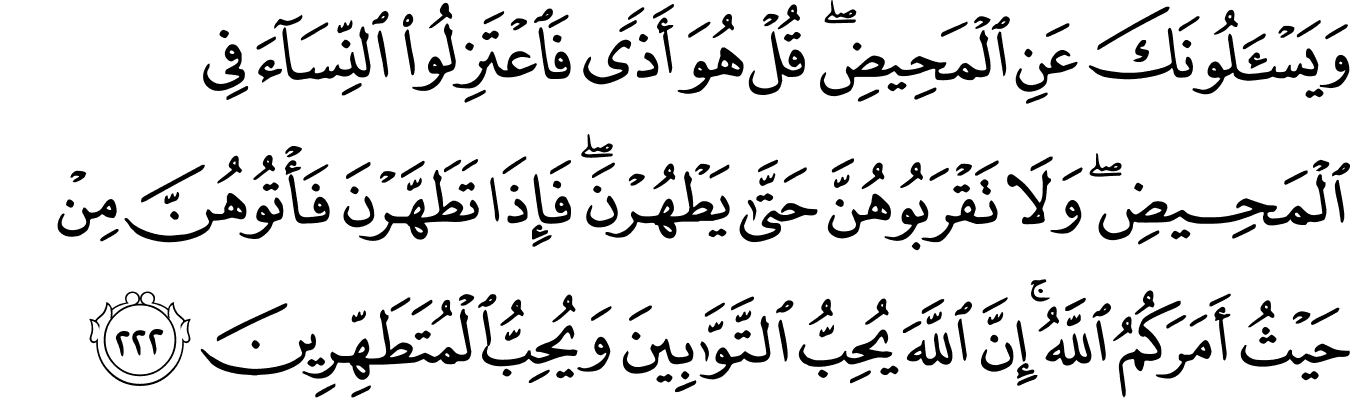 وَيَسْـَٔلُونَكَ عَنِ ٱلْمَحِيضِ ۖ قُلْ هُوَ أَذًى فَٱعْتَزِلُوا۟ ٱلنِّسَآءَ فِى
ٱلْمَحِيضِ ۖ وَلَا تَقْرَبُوهُنَّ حَتَّىٰ يَطْهُرْنَ ۖ فَإِذَا تَطَهَّرْنَ فَأْتُوهُنَّ مِنْ
حَيْثُ أَمَرَكُمُ ٱللَّهُ ۚ إِنَّ ٱللَّهَ يُحِبُّ ٱلتَّوَّٰبِينَ وَيُحِبُّ ٱلْمُتَطَهِّرِينَ ٢٢٢